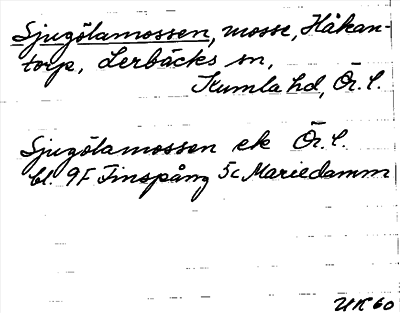 Sjugölamossen, mosse, Håkan-
torp, Lerbäcks sn,
Kumla hd, Ör. l.
Sjugölamossen ek Ör. l.
bl. 9F Finspång 5c Mariedamm
UK 60